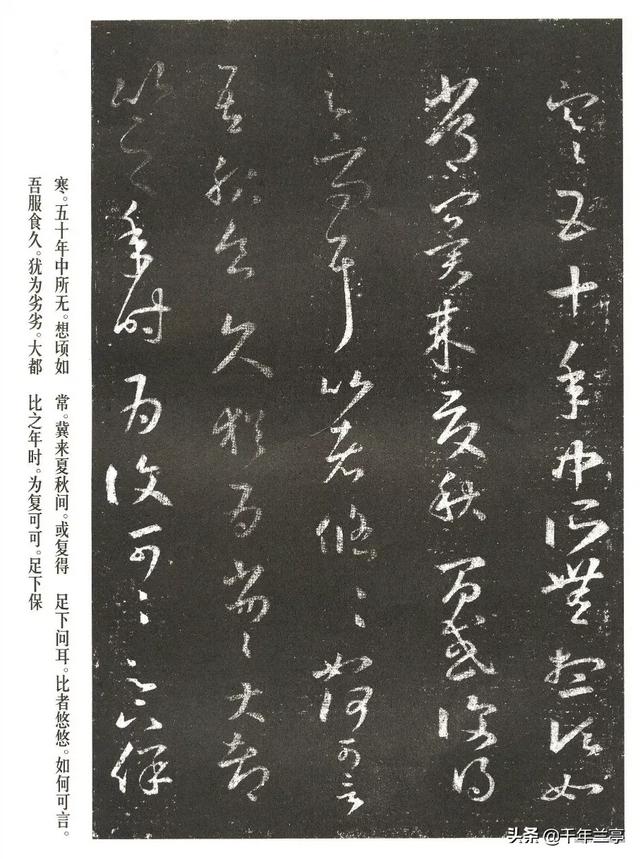 寒五十年中所無想頃如
常冀來夏秋間或復得
足下問耳比者悠悠如何可言
吾服食久猶為劣劣大都
比之年時為復可可足下保
寒。五十年中所无。想顷如　常。冀来夏秋间。或复得　足下问耳。比者悠悠。如何可言。
吾服食久。犹为劣劣。大都　比之年时。为复可可。足下保
头条 @千年兰亭